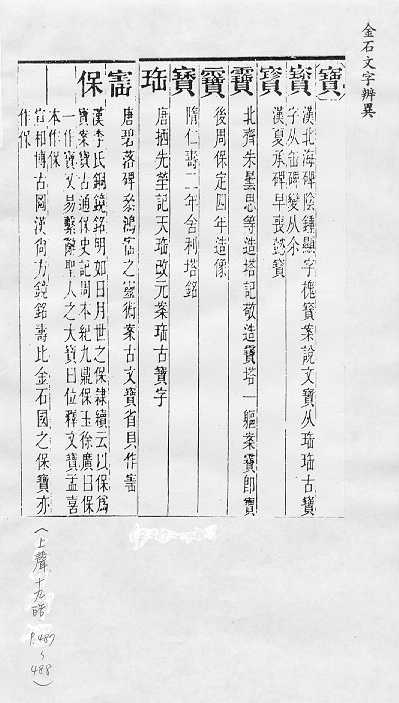 金石文字辨異
寶
寳 漢北海碑陰鍾顯字槐寳案説文寶从珤珤古寶
字从缶碑變从尒
寶 漢夏承碑早喪懿寶
靌 北齊朱曇思等造塔記敬造靌塔一軀案靌卽寶
靌 後周保定四年造像
寳 隋仁壽二年舍利塔銘
珤 唐栖先塋記天珤改元案珤古寶字
唐碧落碑豢鴻寚之靈術案古文寶省貝作寚
保 漢李氏銅鏡銘明如日月世之保隸續云以保爲
寶案寶古通保史記周本紀九鼎保玉徐廣曰保
一作寶又易繫辭聖人之大寶曰位釋文寶孟喜
本作保
宣和博古圖漢尚方鏡銘壽比金石國之保寶亦
作保
(上聲十九皓
P.487
~
488)